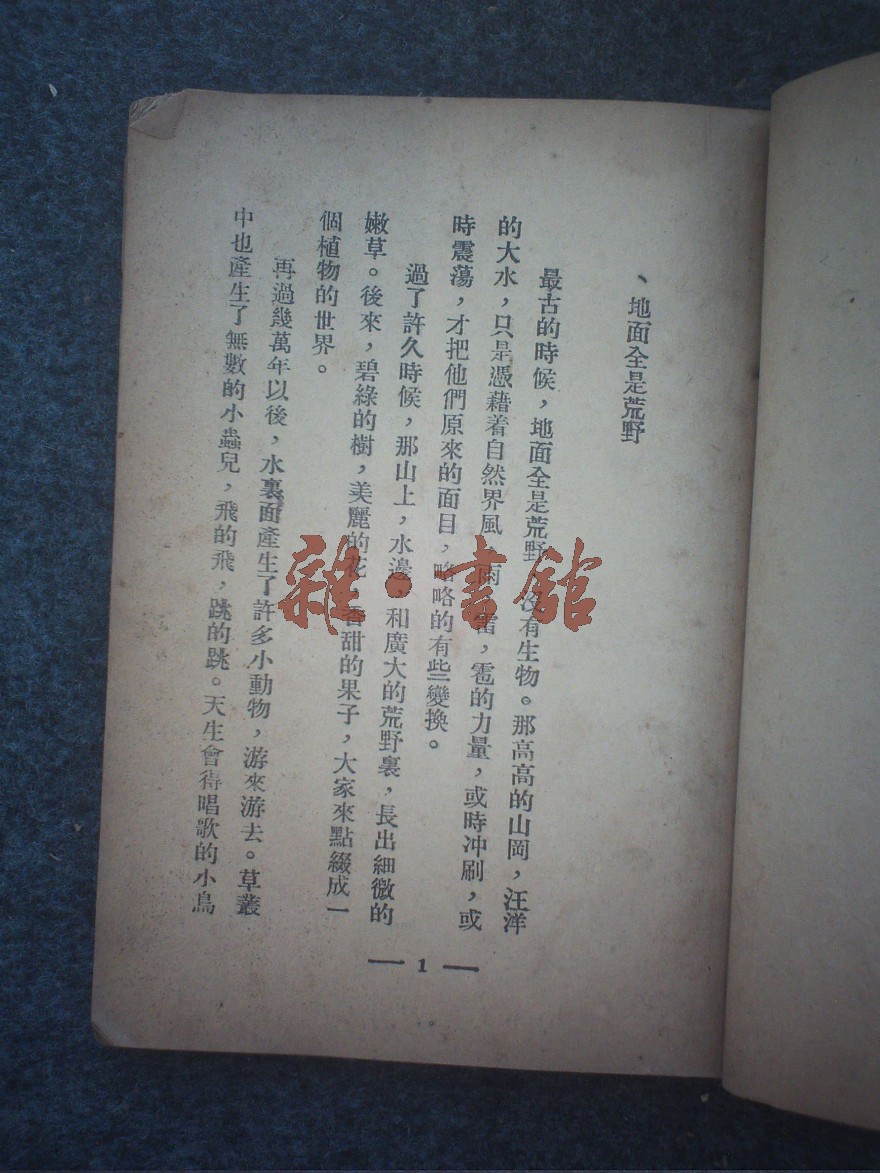 、地面全是荒野
最古的時候，地面全是荒野，沒有生物。那高高的山岡，汪洋
的大水，只是憑藉着自然界風，雨，雷，雹的力量，或時冲刷，或
時震蕩，才把他們原來的面目，略略的有些變換。
過了許久時候，那山上，水邊，和廣大的荒野裏，長出細微的
嫩草。後來，碧綠的樹，美麗的花，香甜的果子，大家來點綴成一
個植物的世界。
再過幾萬年以後，水裏面產生了許多小動物，游來游去。草叢
中也產生了無數的小蟲兒，飛的飛，跳的跳。天生會得唱歌的小鳥
— 1 —
雜·書館